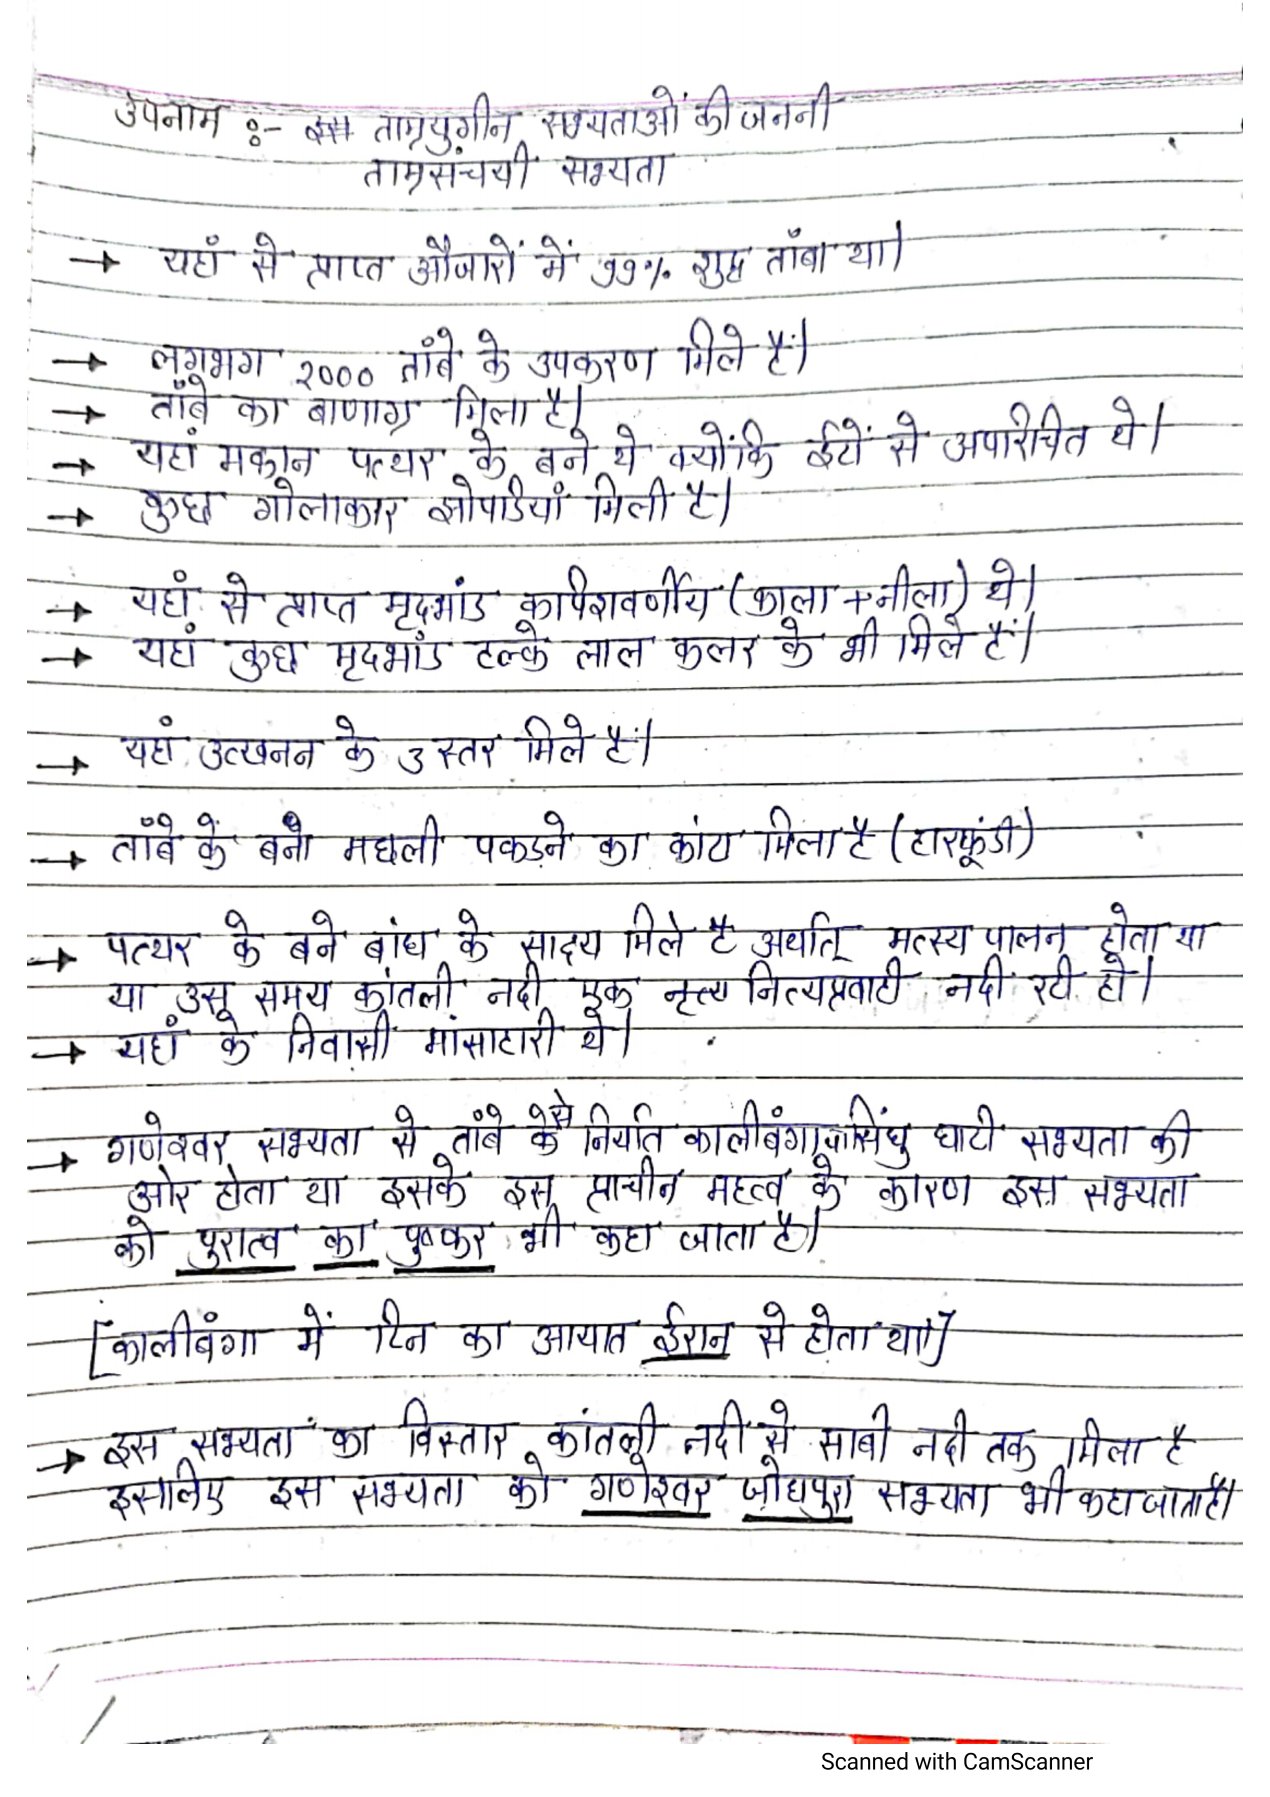 उपनाम :- ताम्रयुगीन सभ्यताओं की जननी
ताम्रसंचयी सभ्यता
→ यहां से प्राप्त औजारों में 99% शुद्ध ताँबा था।
→ लगभग 2000 तांबे के उपकरण मिले हैं।
→ ताँबे का बाणाग्र मिला है।
→ यहां मकान पत्थर के बने थे क्योंकि ईटों से अपरिचित थे।
→ कुछ गोलाकार झोपडियाँ मिली है।
→ यहां से प्राप्त मृदभांड कपिशवर्णीय (काला + नीला) थे।
→ यहां कुछ मृदभांड हल्के लाल कलर के भी मिले हैं।
→ यहां उत्खनन के 3 स्तर मिले हैं।
→ ताँबे के बने मछली पकड़ने का कांटा मिला है (हारफूंडी)
→ पत्थर के बने बांध के साक्ष्य मिले है अर्थात् मत्स्य पालन होता था
या उस समय कांतली नदी एक नित्यप्रवाही नदी रही हो।
→ यहां के निवासी मांसाहारी थे।
→ गणेश्वर सभ्यता से तांबे के निर्यात कालीबंगा सिंधु घाटी सभ्यता की
ओर होता था इसके इस प्राचीन महत्व के कारण इस सभ्यता
को पुरातत्व का पुष्कर भी कहा जाता है।
[कालीबंगा में टिन का आयात ईरान से होता था।]
→ इस सभ्यता का विस्तार कांतली नदी से साबी नदी तक मिला है
इसलिए इस सभ्यता को गणेश्वर जोधपुरा सभ्यता भी कहा जाता है।
Scanned with CamScanner